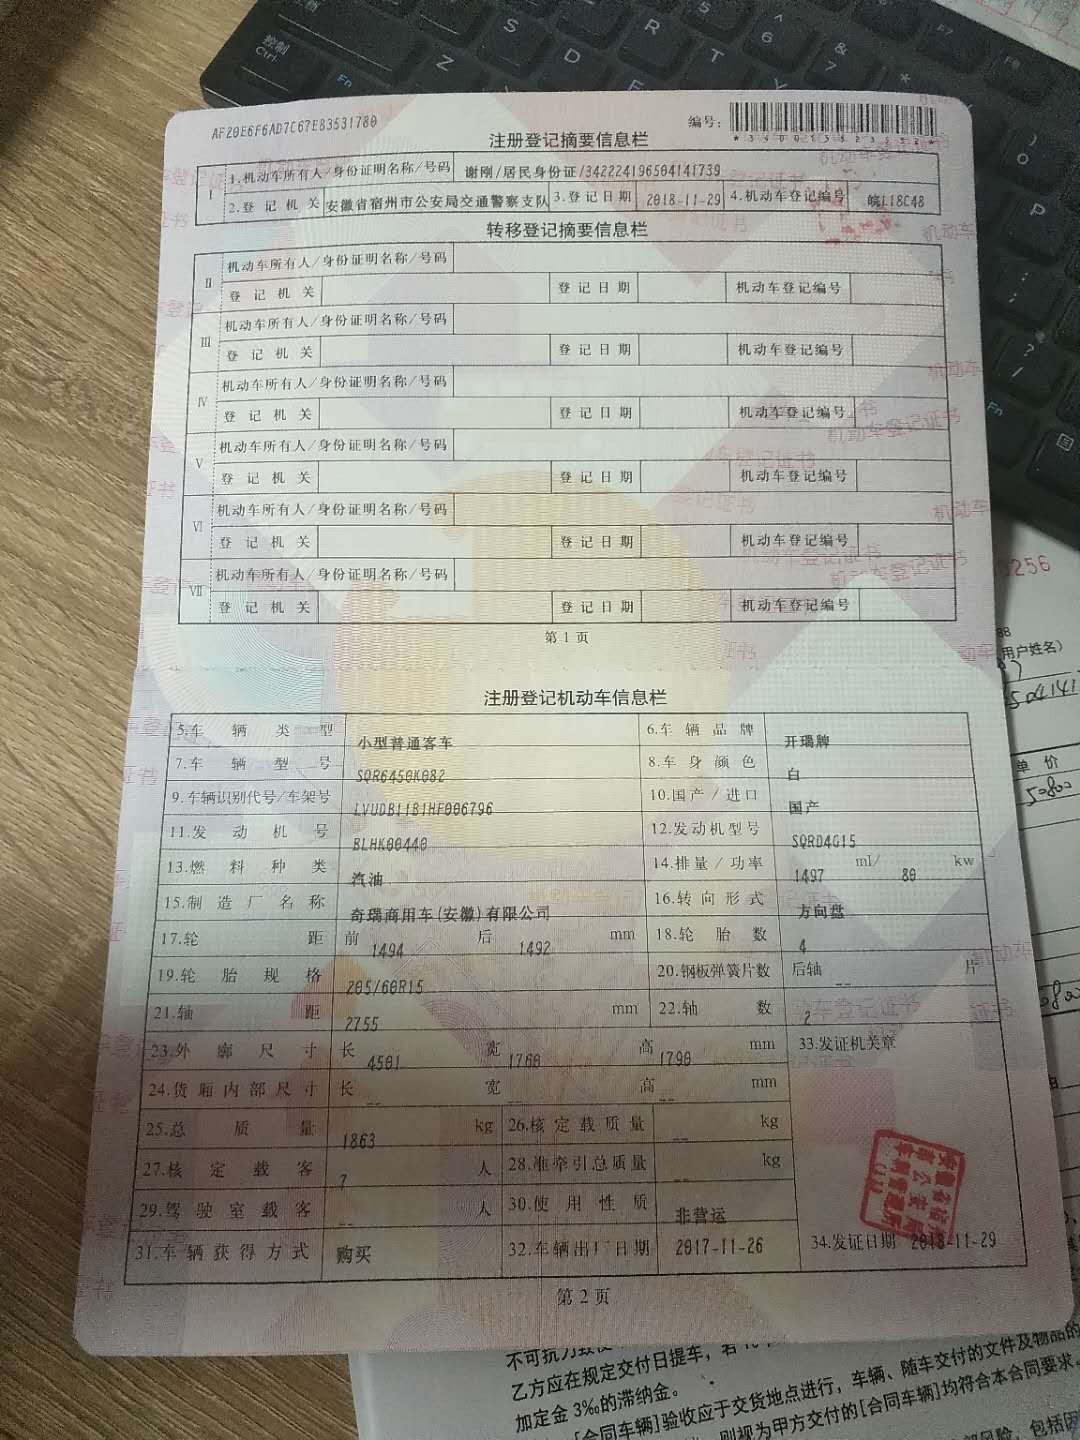 AF20E6F6AD7C67E83531780
编号:
注册登记摘要信息栏
I 1.机动车所有人/身份证明名称/号码 谢刚/居民身份证/342224196504141739
2.登记机关 安徽省宿州市公安局交通警察支队 3.登记日期 2018-11-29 4.机动车登记编号 皖L18C48
转移登记摘要信息栏
II 机动车所有人/身份证明名称/号码
登记机关 登记日期 机动车登记编号
III 机动车所有人/身份证明名称/号码
登记机关 登记日期 机动车登记编号
IV 机动车所有人/身份证明名称/号码
登记机关 登记日期 机动车登记编号
V 机动车所有人/身份证明名称/号码
登记机关 登记日期 机动车登记编号
VI 机动车所有人/身份证明名称/号码
登记机关 登记日期 机动车登记编号
VII 机动车所有人/身份证明名称/号码
登记机关 登记日期 机动车登记编号
第1页
注册登记机动车信息栏
5.车辆类型 小型普通客车 6.车辆品牌 开瑞牌
7.车辆型号 SQR6450K082 8.车身颜色 白
9.车辆识别代号/车架号 LVUDB11B1HF006796 10.国产/进口 国产
11.发动机号 BLHK00440 12.发动机型号 SQRD4G15
13.燃料种类 汽油 14.排量/功率 1497 ml/ 80 kw
15.制造厂名称 奇瑞商用车(安徽)有限公司 16.转向形式 方向盘
17.轮距 前 1494 后 1492 mm 18.轮胎数 4
19.轮胎规格 205/60R15 20.钢板弹簧片数 后轴 -- 片
21.轴距 2755 mm 22.轴数 2
23.外廓尺寸 长 4501 宽 1760 高 1790 mm 33.发证机关章
24.货厢内部尺寸 长 -- 宽 -- 高 -- mm
25.总质量 1863 kg 26.核定载质量 -- kg
27.核定载客 7 人 28.准牵引总质量 -- kg
29.驾驶室载客 -- 人 30.使用性质 非营运
31.车辆获得方式 购买 32.车辆出厂日期 2017-11-26 34.发证日期 2018-11-29
第2页
用户姓名)
单价
50800
乙方应在规定交付日提车，若
加定金3‰的滞纳金。
[合同车辆]验收应于交货地点进行，车辆、随车交付的文件及物品的
则视为甲方交付的[合同车辆]均符合本合同要求。